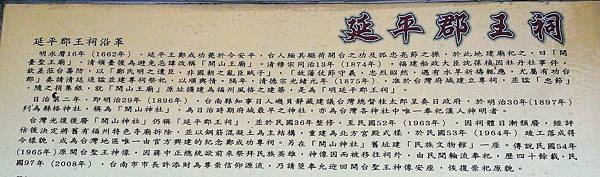 延平郡王祠
延平郡王祠沿革
明永曆16年(1662年),延平王鄭成功薨於今安平,台人緬其驅荷開台之功及孤忠亮節之操,於此地建廟祀之,曰「開
臺聖王廟」,清領臺後為避免忌諱改稱「開山王廟」。清穆宗同治13年(1874年),福建船政大臣沈葆楨因牡丹社事件,
欽差蒞台籌防,以「鄭氏明之遺臣,非國朝之亂臣賊子」,「故藩仗節守義,忠烈凛然,遇有水旱祈禱輒應,尤屬有功台
郡」奏請清廷追諡並建專祠祭祀,以順輿情。隔年,清德宗光緒元年(1875年),准於台灣府城建立專祠,並諡「忠節」
,隨之招集銀,就「開山王廟」原址擴建為福州風格之建築,是為「明延平郡王祠」。
日治二年,即明治29年(1896年),台南縣知事日人磯貝靜藏建議台灣總督桂太郎呈奏日政府,於明治30年(1897年)
列為縣格神社,稱為「開山神社」,為日治時期府城最早之神社,亦為台灣各神社中唯一奉祀漢人神明者。
台灣光復後廢「開山神社」仍稱「延平郡王祠」,並於民國36年整修,至民國52年(1963年),因祠體日漸頹廢,經評
估後決定將舊有福州特色寺廟拆除,並以鋼筋混凝土為主結構,重建為北方宮殿式樣,於民國53年(1964年)竣工落成得
今樣貌,成為台灣地區唯一由官方興建的紀念鄭成功專祠。另在「開山神社」舊址建「民族文物館」一座。傳說民國54年
(1965年)原開台聖王神像,因蔣中正總統欲前來祭拜民族英雄,神像因而被移往祠外,由民間輪流奉祀,歷四十餘載,民
國97年(2008年),台南市市長許添財為尊崇信仰源流,乃請筊奉允迎回開台聖王神像安座,恢復崇祀原貌。